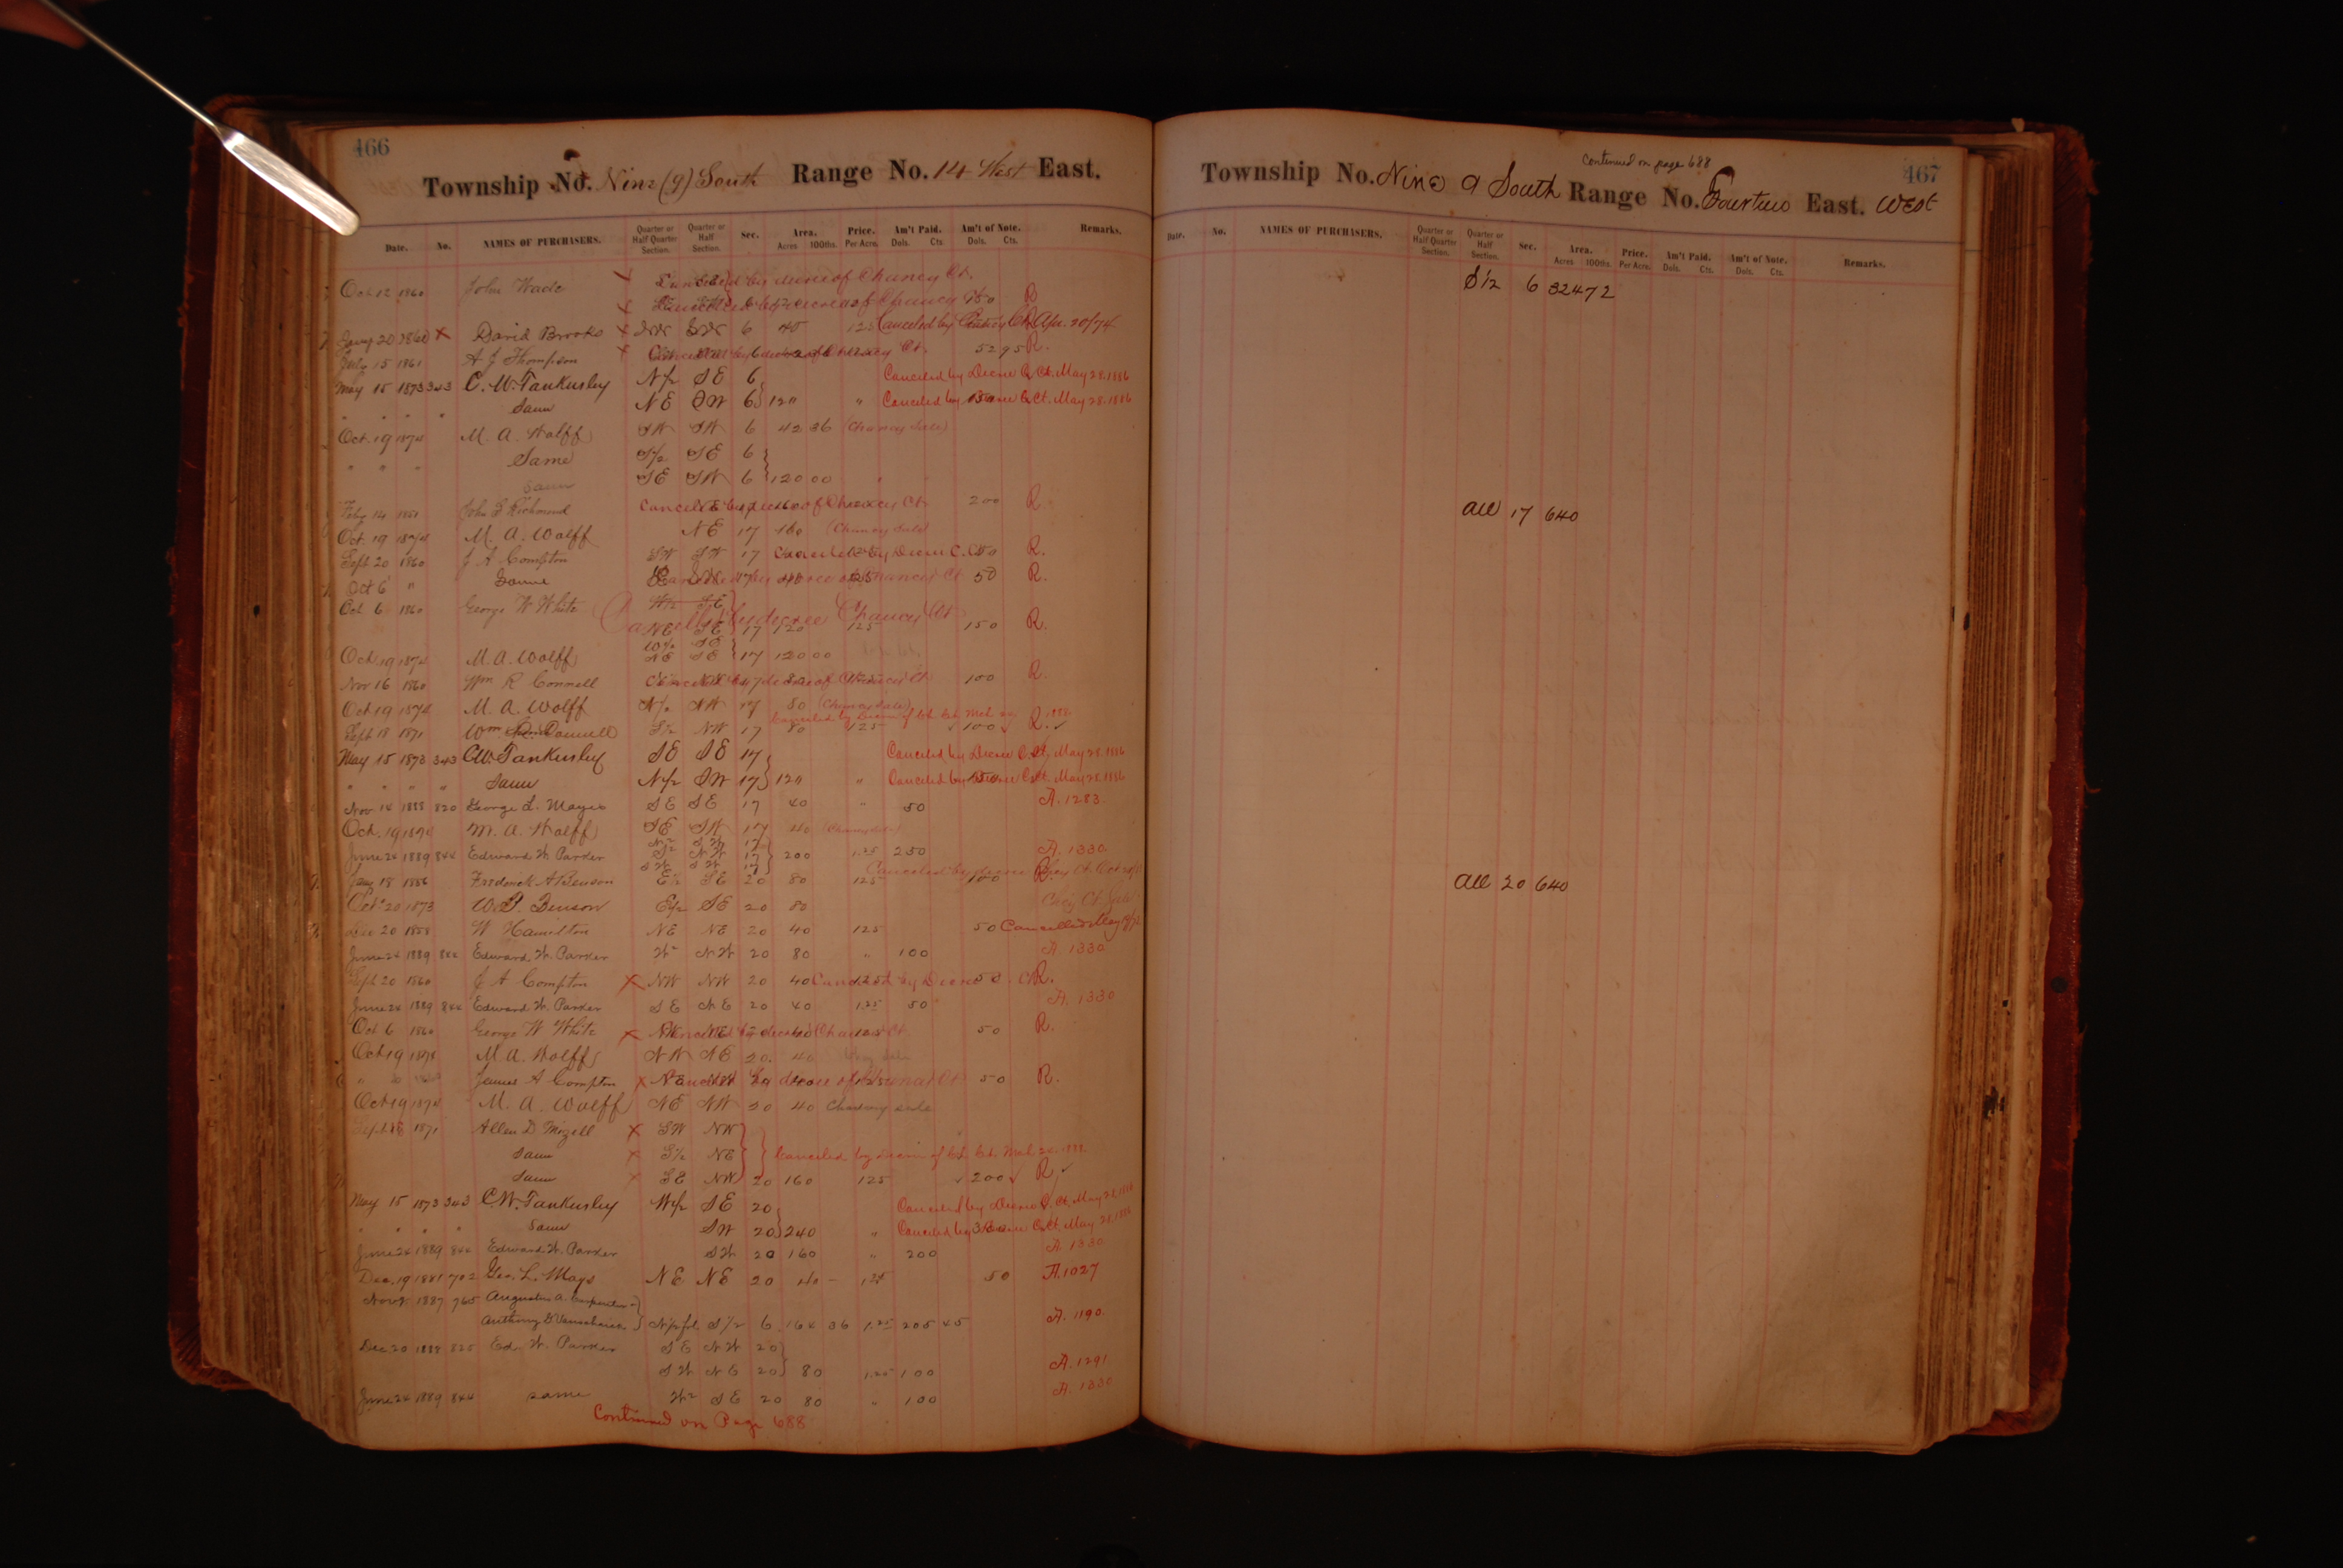 466
Township No. Nine (9) South Range No. 14 West East.
Date. No. NAMES OF PURCHASERS. Quarter or Half Quarter Section. Quarter or Half Section. Sec. Area. Acres 100ths. Price. Per Acre. Am't Paid. Dols. Cts. Am't of Note. Dols. Cts. Remarks.
Oct 12 1860 John Wade by decree of Chancy Ct.
6 R
David Brooks 6 40 125 Canceled by Chancy Ct Apr. 20/74
July 15 1861 A J Thompson 6 52 95 R.
May 15 1873 343 C. W. Tankersley N/2 SE 6 Canceled by Decree C. Ct. May 28. 1886
" " " " Same NE SW 6 120 " Canceled by Decree C. Ct. May 28. 1886
Oct. 19 1874 M. A. Wolff SW SW 6 42 36 (Chancy Sale)
" " " Same S/2 SE 6
Same SE SW 6 120 00
Feby 14 John Richmond Canceled by decree of Chancy Ct. 200 R
Oct. 19 1874 M. A. Wolff NE 17 160 (Chancy Sale)
Sept 20 1860 J A Compton SW SW 17 Canceled by Decree C. Ct. 50 R.
Oct 6 " Same 17 40 125 50 R.
Oct 6 1860 George W White W/2 SE
Cancelled by decree Chancy Ct
NE SE 17 120 125 150 R.
W/2 SE
Oct. 19 1874 M. A. Wolff NE SE 17 120 00
Nov 16 1860 Wm R Connell Canceled by decree of Chancy Ct 100 R
Oct 19 1874 M. A. Wolff N/2 NW 17 80 (Chancy sale)
Sept 18 1871 Wm S/2 NW 17 80 125 100 R.
May 15 1873 343 C. W. Tankersley SE SE 17 Canceled by Decree C. Ct. May 28. 1886
" " " " Same N/2 SW 17 120 " Canceled by Decree C. Ct. May 28. 1886
Nov 14 1888 820 George L. Mayes SE SE 17 40 " 50 A. 1283.
Oct. 19 1874 M. A. Wolff SE SW 17 40 (Chancy sale)
June 24 1889 844 Edward W. Parker 17 200 1.25 250 A. 1330.
SW SW 17
Jany 18 1856 Frederick A Benson E/2 SE 20 80 125 100 R.
Oct 20 1873 W. P. Benson E/2 SE 20 80 Chcy Ct. Sale
Dec 20 1858 W Hamilton NE NE 20 40 125 50 Cancelled May
June 24 1889 844 Edward. W. Parker W2 NW 20 80 " 100 A. 1330
Sept 20 1860 J A Compton X NW NW 20 40 Canceled by Decree 50 R.
June 24 1889 844 Edward W. Parker SE NE 20 40 1.25 50 A. 1330
Oct 6 1860 George W White X NW NE 50 R.
Oct 19 1874 M. A. Wolff NW NE 20. 40 Chcy sale
James A Compton X 50 R.
Oct 19 1874 M. A. Wolff NE NW 20 40 Chancy sale
Sept 18 1871 Allen D Mizell X SW NW
Same X S/2 NE
Same X SE NW 20 160 125 200 R
May 15 1873 343 C. W. Tankersley W/2 SE 20 Canceled by Decree C. Ct. May 28, 1886
" " " " Same SW 20 240 " Canceled by Decree C. Ct. May 28, 1886
June 24 1889 844 Edward. W. Parker SW 20 160 " 200 A 1330
Dec. 19 1885 702 Geo. L. Mays NE NE 20 40 - 1.25 50 A. 1027
Nov 1887 765 Augustus A. Carpenter
Anthony G. Van Schaick N/2 frl. S 1/2 6 164 36 1.25 205 45 A. 1190.
Dec 20 1888 825 Ed. W. Parker SE NW 20
SW NE 20 80 1.25 100 A. 1291
June 24 1889 844 same W2 SE 20 80 " 100 A. 1330
Continued on Page 688
Continued on page 688
467
Township No. Nine 9 South Range No. Fourteen East. West
Date. No. NAMES OF PURCHASERS. Quarter or Half Quarter Section. Quarter or Half Section. Sec. Area. Acres 100ths. Price. Per Acre. Am't Paid. Dols. Cts. Am't of Note. Dols. Cts. Remarks.
S 1/2 6 324 72
all 17 640
all 20 640